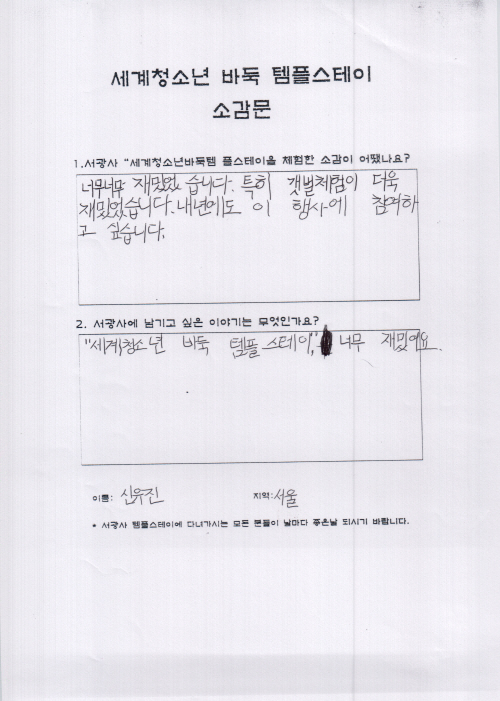 세계청소년 바둑 템플스테이
소감문
1.서광사 "세계청소년바둑템 플스테이을 체험한 소감이 어땠나요?
너무너무 재밌었 습니다. 특히 갯벌체험이 더욱
재밌었습니다. 내년에도 이 행사에 참여하
고 싶습니다.
2. 서광사에 남기고 싶은 이야기는 무엇인가요?
"세계청소년 바둑 템플스테이", 너무 재밌어요.
이름: 신유진 지역:서울
* 서광사 템플스테이에 다녀가시는 모든 분들이 날마다 좋은날 되시기 바랍니다.